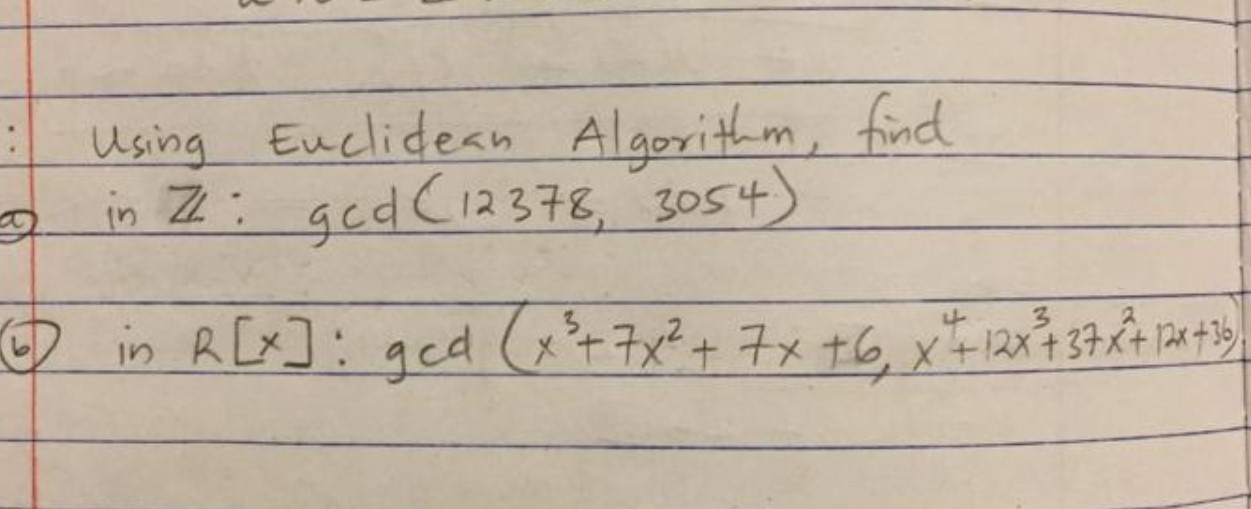 : Using Euclidean Algorithm, find
(a) in ℤ: gcd(12378, 3054)
(b) in R[x]: gcd (x³+7x²+7x+6, x⁴+12x³+37x²+12x+36)